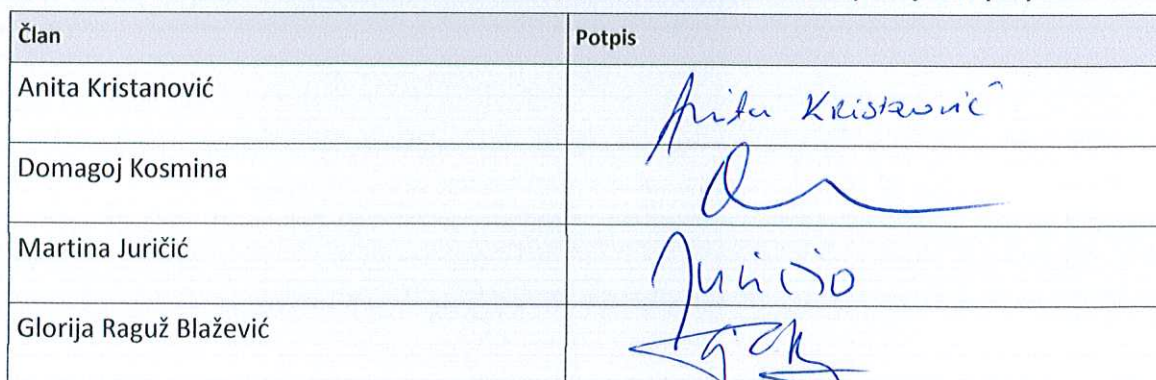 Član Potpis
Anita Kristanović Anita Kristanović
Domagoj Kosmina
Martina Juričić
Glorija Raguž Blažević